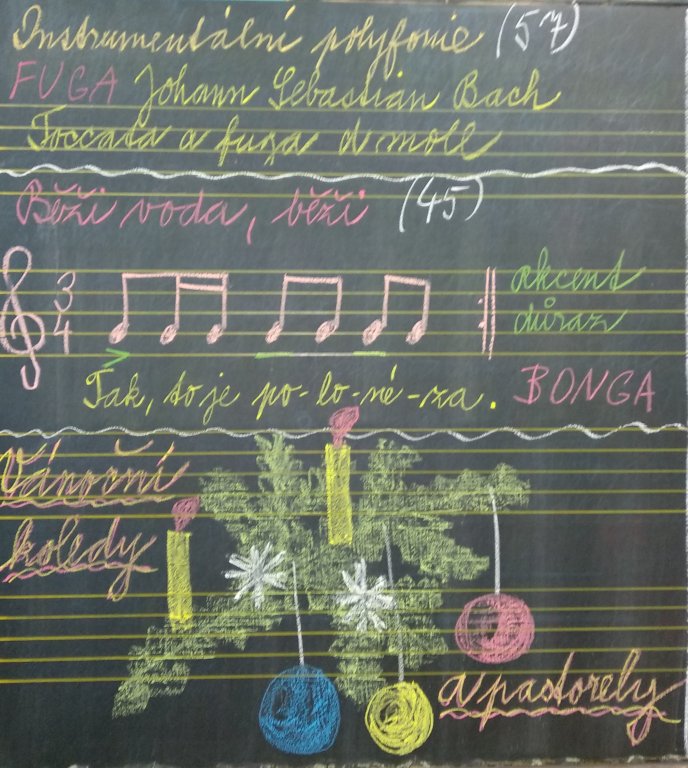 Instrumentální polyfonie (57)
FUGA Johann Sebastian Bach
Toccata a fuga d moll
Běží voda, běží (45)
3
4
akcent
důraz
Tak, to je po-lo-né-za. BONGA
Vánoční
koledy
a pastorely